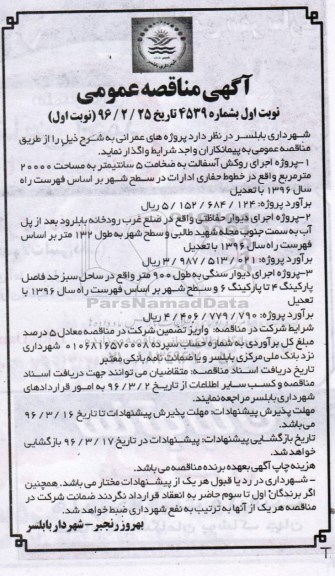 آگهی مناقصه عمومی
نوبت اول بشماره ۴۵۳۹ تاریخ ۲۵ / ۲ / ۹۶ (نوبت اول)
شهرداری بابلسر در نظر دارد پروژه های عمرانی به شرح ذیل را از طریق
مناقصه عمومی به پیمانکاران واجد شرایط واگذار نماید.
۱-پروژه اجرای روکش آسفالت به ضخامت ۵ سانتیمتر به مساحت ۲۰۰۰۰
مترمربع واقع در خطوط حفاری ادارات در سطح شهر بر اساس فهرست راه
سال ۱۳۹۶ با تعدیل
برآورد پروژه: ۱۲۴ / ۶۸۴ / ۱۵۲ / ۵ ریال
۲-پروژه اجرای دیوار حفاظتی واقع در ضلع غرب رودخانه بابلرود بعد از پل
آب به سمت جنوب محله شهید طالبی و سطح شهر به طول ۱۳۲ متر بر اساس
فهرست راه سال ۱۳۹۶ با تعدیل
برآورد پروژه: ۰۲۱ / ۵۱۳ / ۹۸۷ / ۳ ریال
۳-پروژه اجرای دیوار سنگی به طول ۹۰۰ متر واقع در ساحل سبز حد فاصل
پارکینگ ۴ تا پارکینگ ۶ و سطح شهر بر اساس فهرست راه سال ۱۳۹۶ با
تعدیل
برآورد پروژه: ۷۹۰ / ۷۷۹ / ۴۰۶ / ۴ ریال
شرایط شرکت در مناقصه: واریز تضمین شرکت در مناقصه معادل ۵ درصد
مبلغ کل برآوردی به شماره حساب سپرده ۰۱۰۶۸۱۶۵۷۰۰۰۸ شهرداری
نزد بانک ملی مرکزی بابلسر و یا ضمانت نامه بانکی معتبر
تاریخ دریافت اسناد مناقصه: متقاضیان می توانند جهت دریافت اسناد
مناقصه و کسب سایر اطلاعات از تاریخ ۲ / ۳ / ۹۶ به امور قراردادهای
شهرداری بابلسر مراجعه نمایند.
مهلت پذیرش پیشنهادات: مهلت پذیرش پیشنهادات تا تاریخ ۱۶ / ۳ / ۹۶
می باشد.
تاریخ بازگشایی پیشنهادات: پیشنهادات در تاریخ ۱۷ / ۳ / ۹۶ بازگشایی
خواهد شد.
هزینه چاپ آگهی بعهده برنده مناقصه می باشد.
- شهرداری در رد یا قبول هر یک از پیشنهادات مختار می باشد. همچنین
اگر برندگان؛ اول تا سوم حاضر به انعقاد قرارداد نگردند ضمانت شرکت در
مناقصه هر یک از آنها به ترتیب به نفع شهرداری ضبط خواهد شد.
بهروز رنجبر - شهردار بابلسر
ParsNamadData